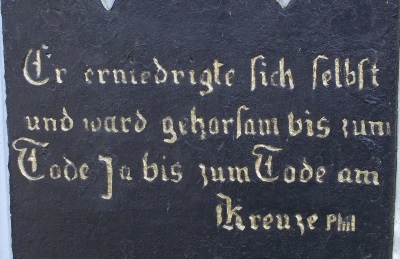 Er erniedrigte sich selbst
und ward gehorsam bis zum
Tode Ja bis zum Tode am
Kreuze Phil